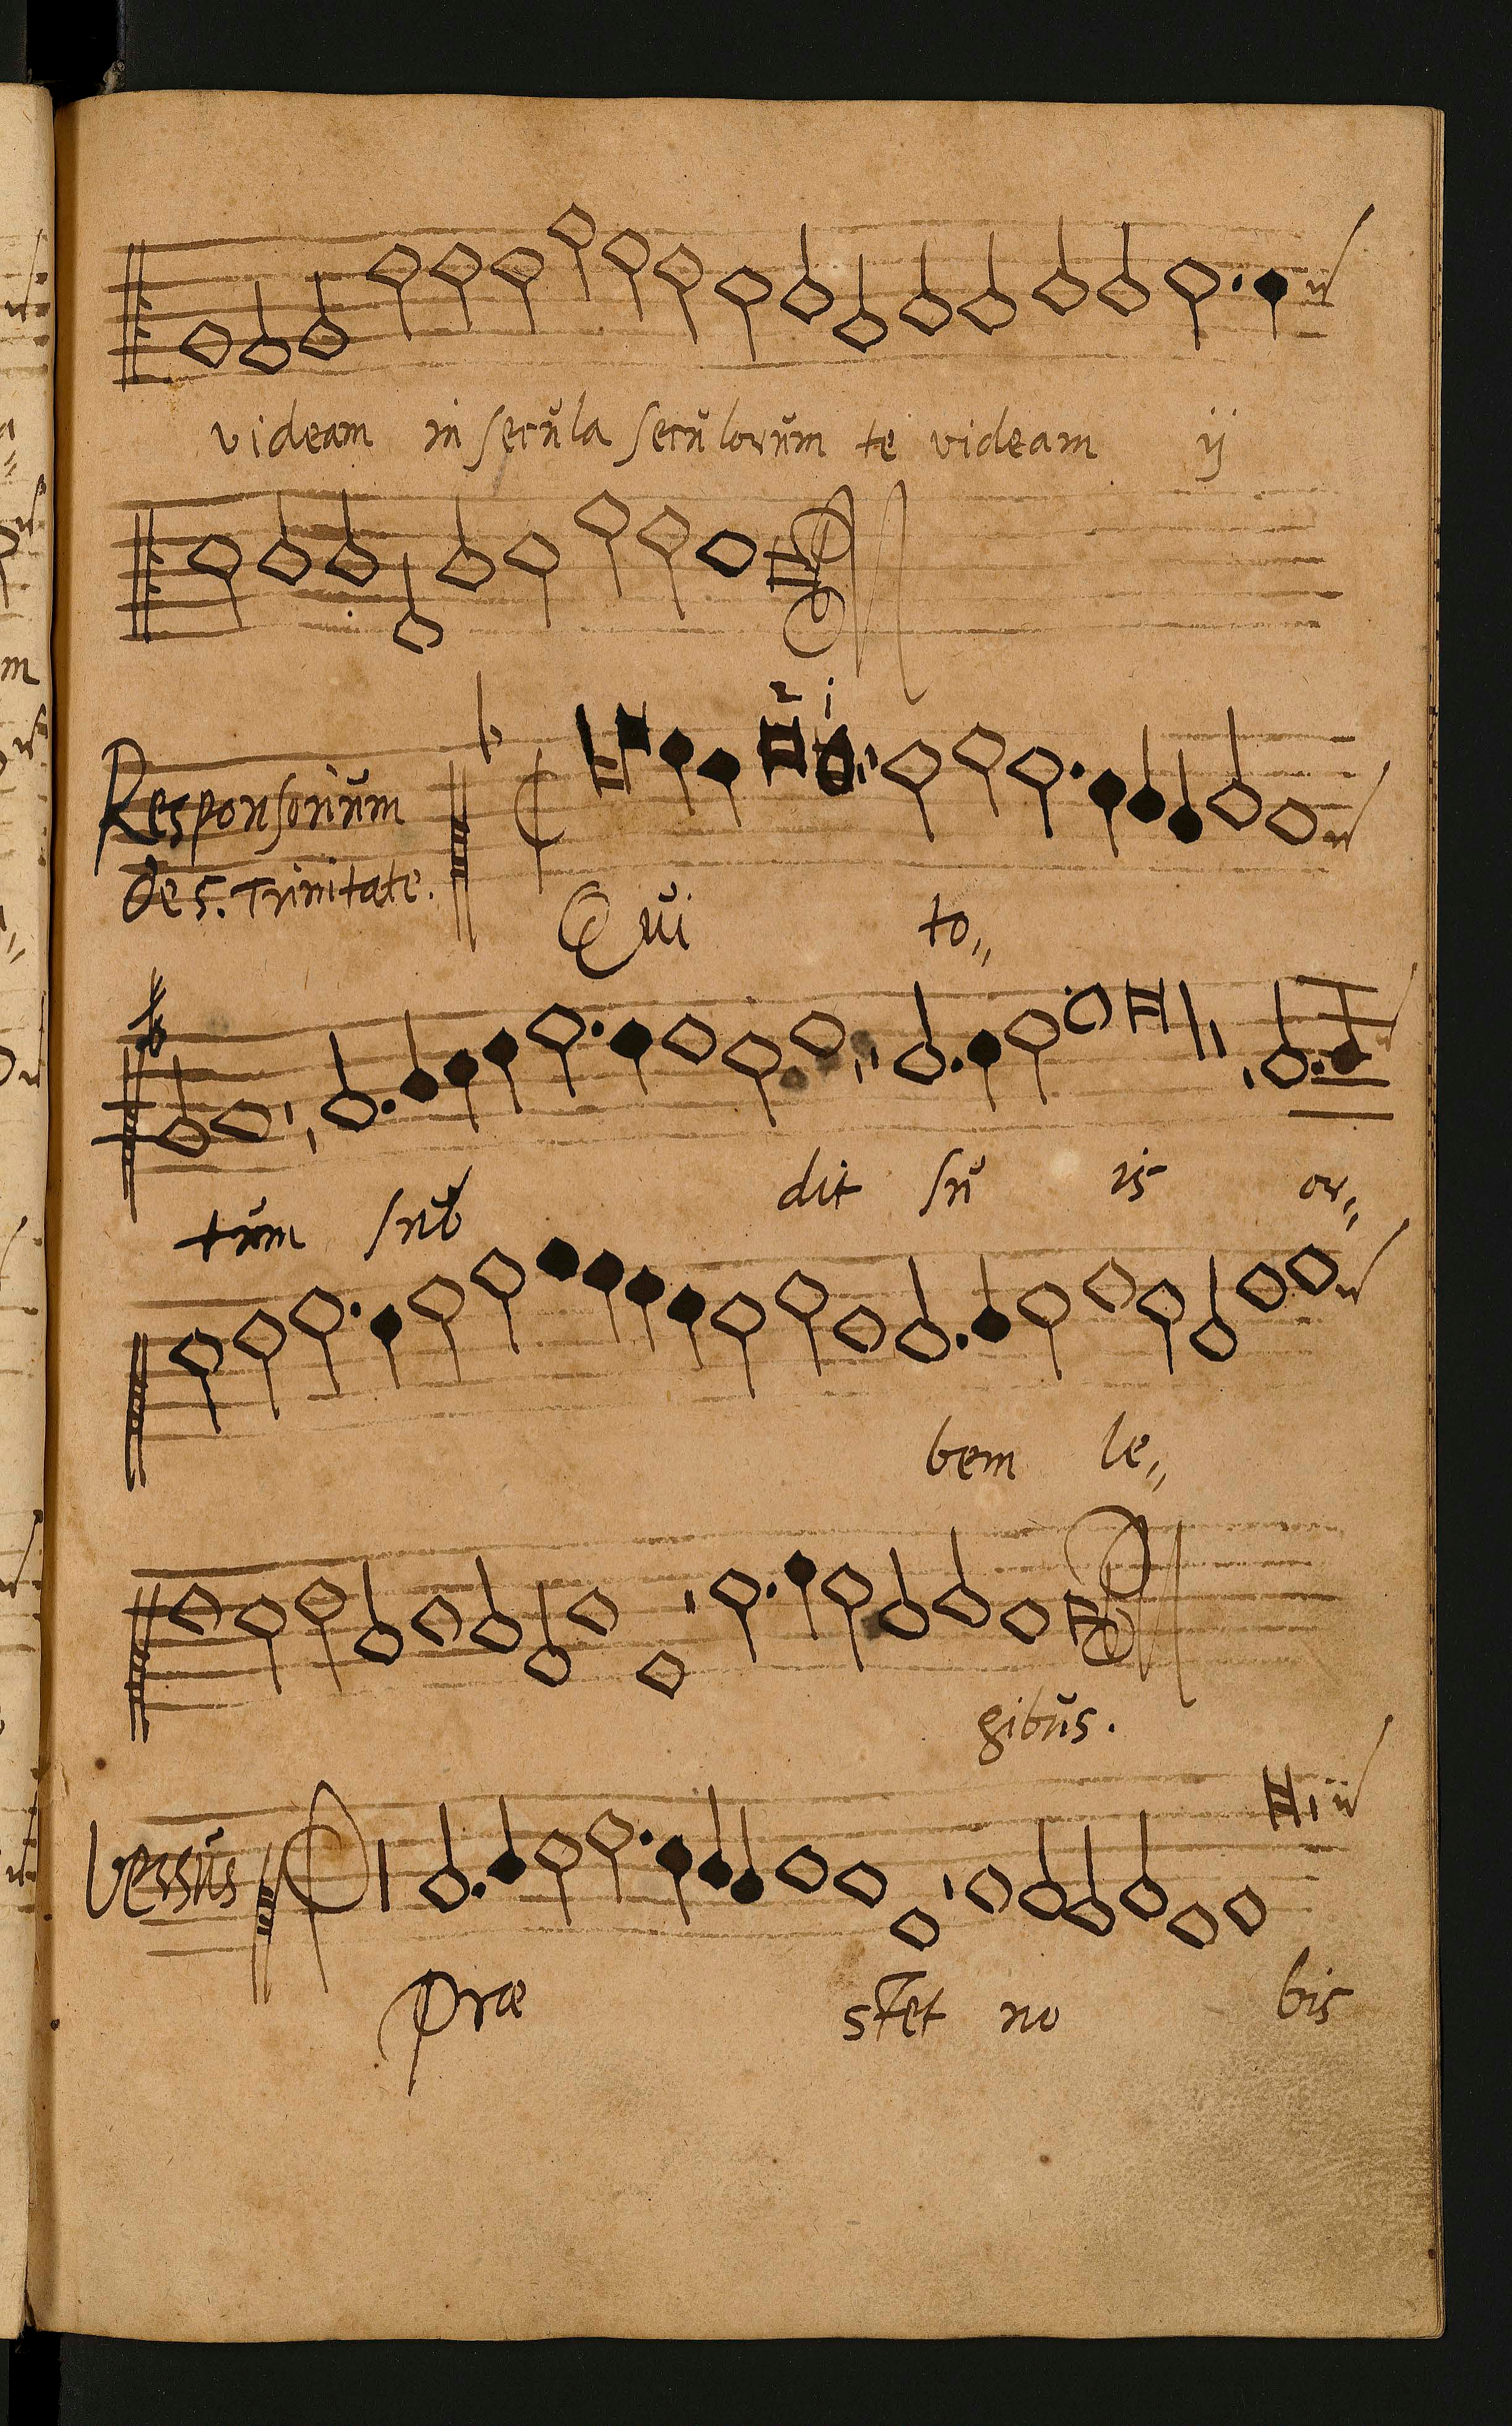 videam in secŭla secŭlorŭm te videam ij
Responsoriŭm
de S. Trinitate.
Qŭi to„
tŭm sŭb dit sŭ is or„
bem le„
gibŭs.
Versŭs
Præ stet no bis